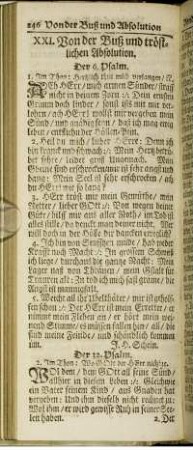 246 Von der Buß und Absolution
XXI. Von der Buß und tröst-
lichen Absolution.
Der 6. Psalm.
1. Im Thon: Hertzlich thut mich verlangen/ &c.
ACh HErr/ mich armen Sünder/ straff
nicht in deinem Zorn
Grimm doch linder/ sonst ists mit mir ver-
lohren/ wollst mir vergeben mein
Sünd/ und gnädig seyn/ daß ich mag ewig
leben/ entfliehn der Höllen-Pein.
2. Heil du mich/ lieber HErre/ denn ich
bin kranck und schwach
mein
Gbeine sind erschrocken/ mir ist sehr angst und
bange/ Mein Seel ist sehr erschrocken/ ach
du HErr wie so lang?
3. HErr tröst mir mein Gemüthe/ mein
Retter/ lieber GOtt/ von wegen deiner
Güte/ hilf mir aus aller Noth/ im Tod ist
alles stille/ da denckt man deiner nicht, Wer
will doch in der Hölle dir dancken ewiglich?
4. Ich bin von Seufftzen müde/ hab weder
Krafft noch Macht/ In grossem Schweiß
ich liege/ durchaus die gantze Nacht/ Mein
Lager naß von Thränen/
mich fast gräme/ die
Angst ist mannigfalt.
5. Weicht all ihr Ubelthäter/ mir ist geholf-
sen schon/ Der HErr ist mein Erretter/ er
nimmt mein Flehen an/ er hört mein wei-
nend Stimme/ es müssen fallen hin/ all/ die
sind meine Feinde/ und schändlich kommen
um.
J. H. Schein.
Der 32. Psalm.
2. Im Thon: Wo GOtt der HErr nicht/ &c.
WOl dem/ dem GOtt all seine Sünd/
allhier in diesem Leben/ Gleichwie
ein Vater seinem Kind/ aus Gnaden hat
vergeben/ Und ihm dieselb nicht
Wol ihm/ er wird gewisse Ruh in seiner See-
len haben.
2. Der